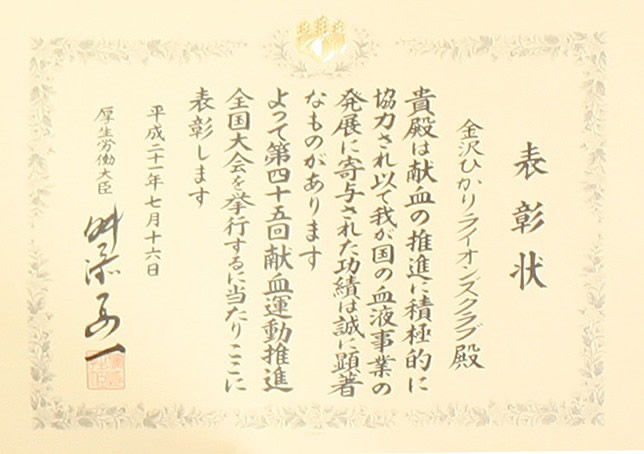 表彰状
金沢ひかりライオンズクラブ殿
貴殿は献血の推進に積極的に
協力され以て我が国の血液事業の
発展に寄与された功績は誠に顕著
なものがあります
よって第四十五回献血運動推進
全国大会を挙行するに当たりここに
表彰します
平成二十一年七月十六日
厚生労働大臣
舛添要一